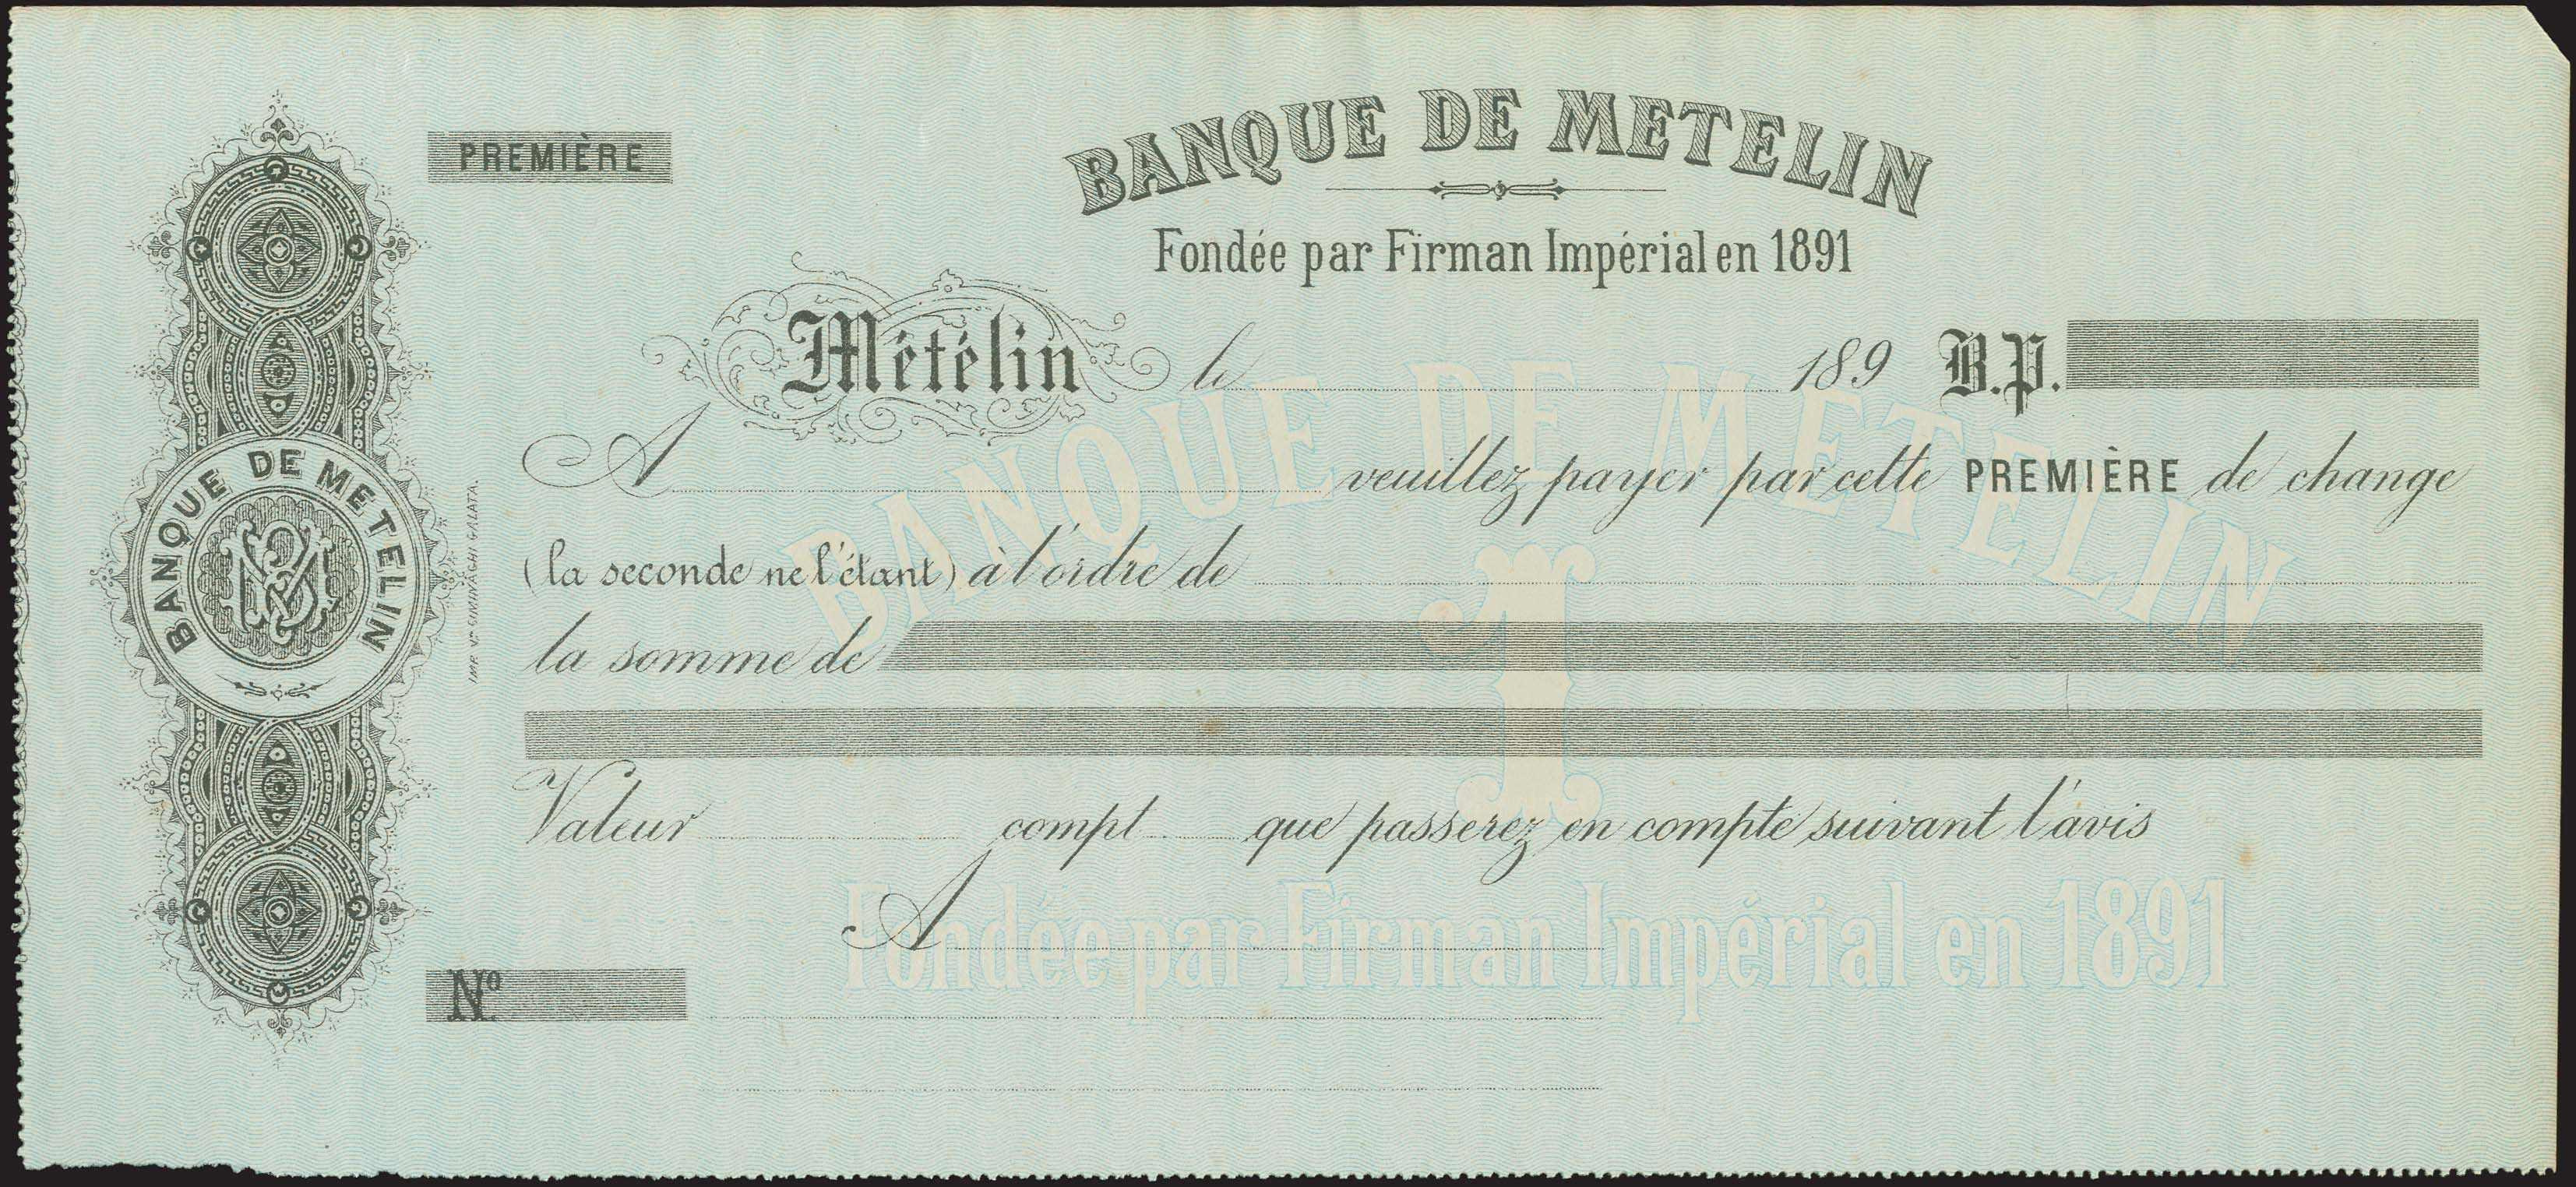 PREMIÈRE
BANQUE DE METELIN
Fondée par Firman Impérial en 1891
Métélin le 189 B.P.
A veuillez payer par cette PREMIÈRE de change
(la seconde ne l'étant) à l'ordre de
la somme de
Valeur compt que passerez en compte suivant l'avis
A
Nº
BANQUE DE METELIN
BM
IMP. Vve GALATA.
BANQUE DE METELIN
1
Fondée par Firman Impérial en 1891